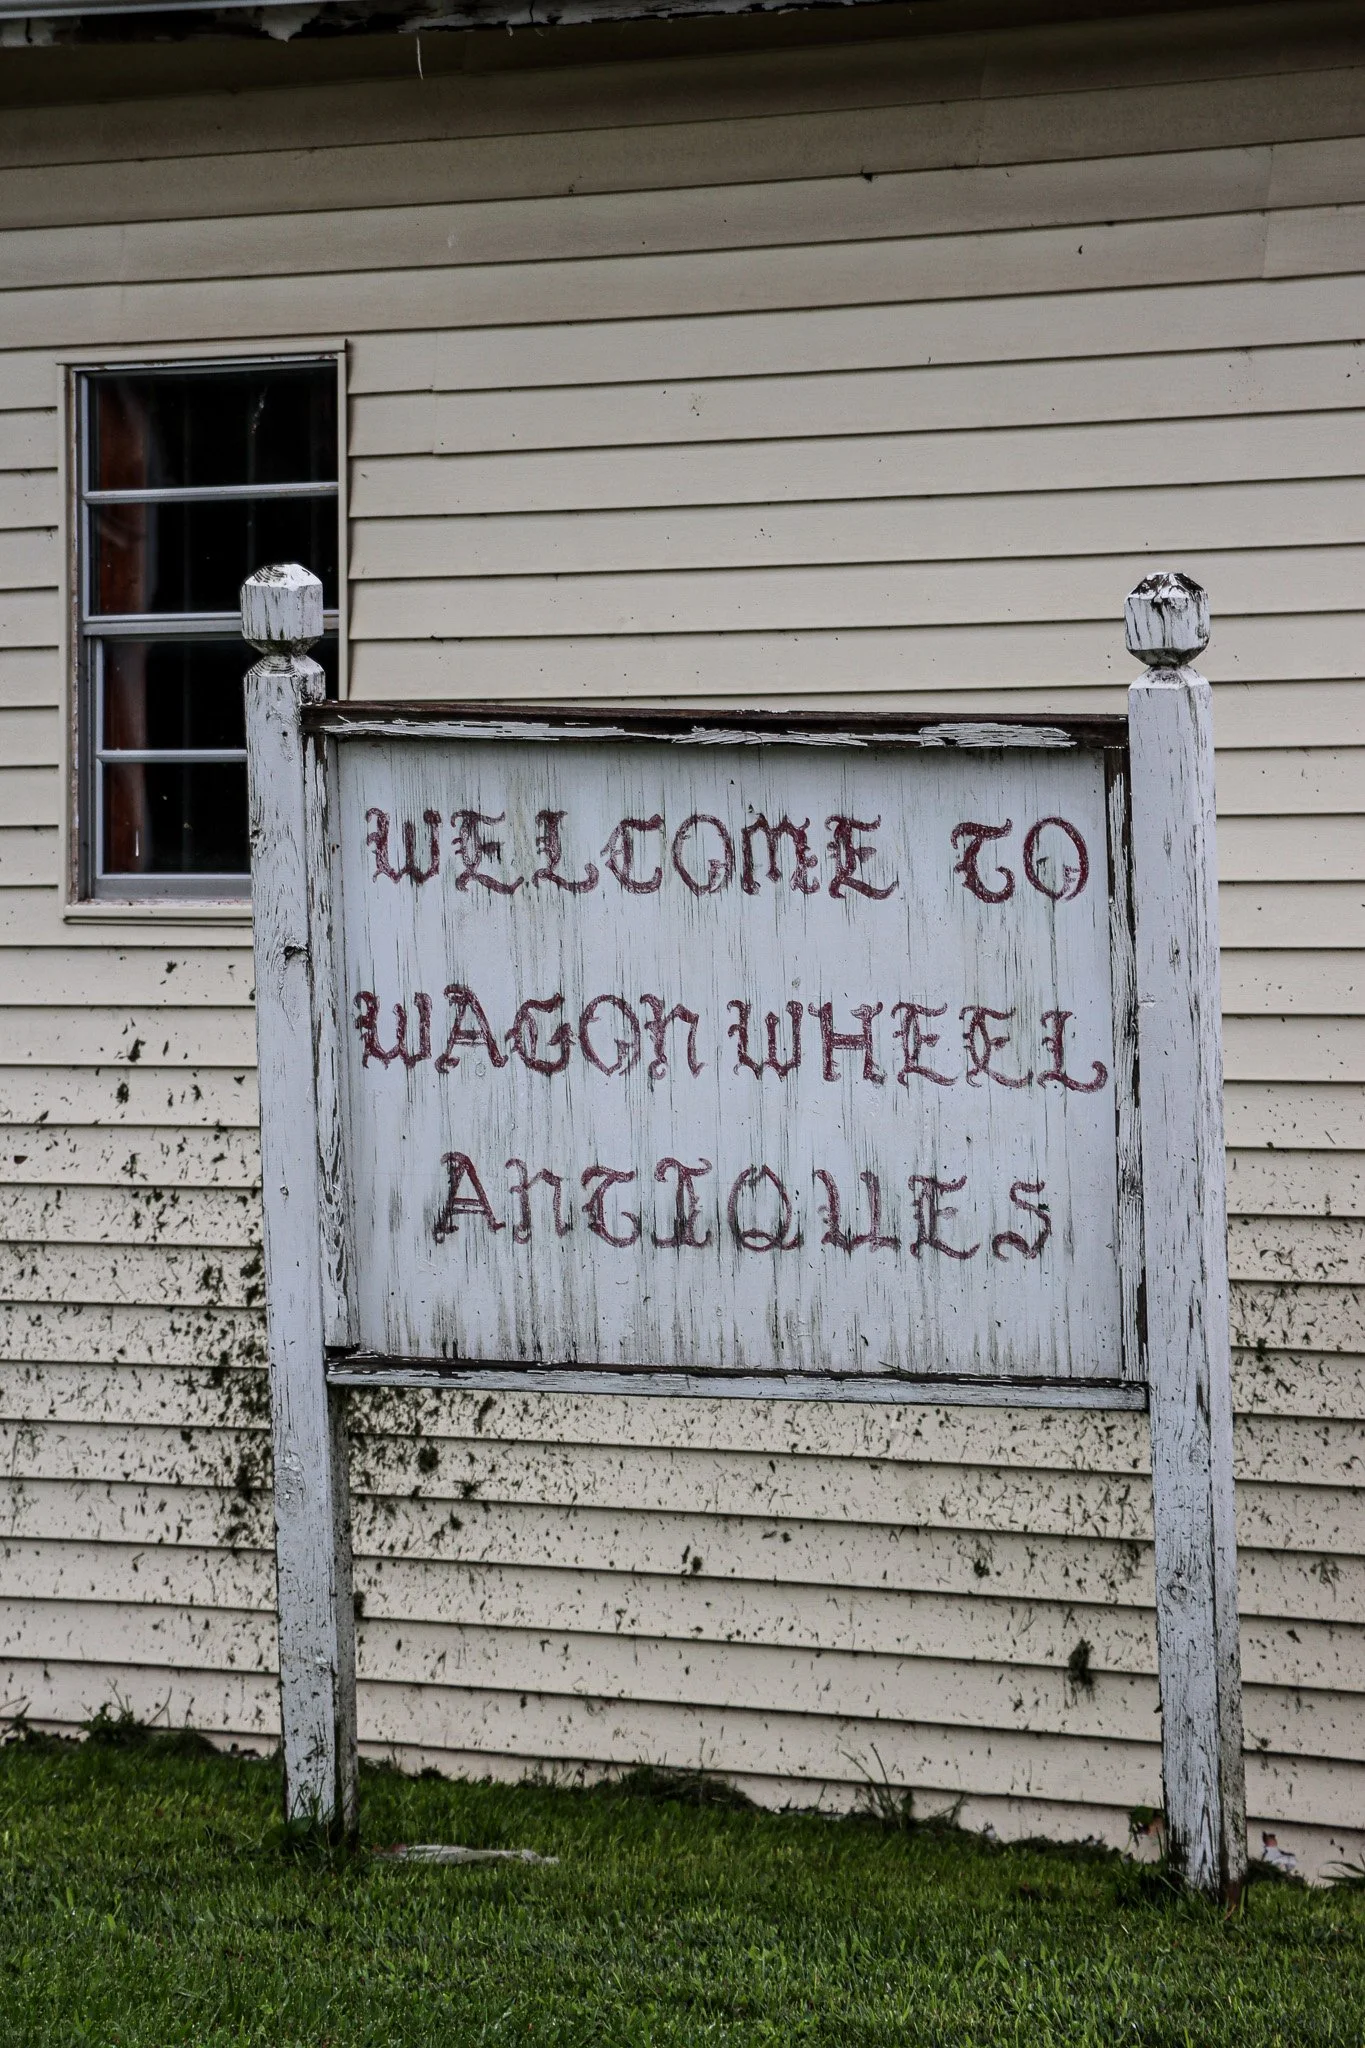 WELCOME TO
WAGON WHEEL
ANTIQUES